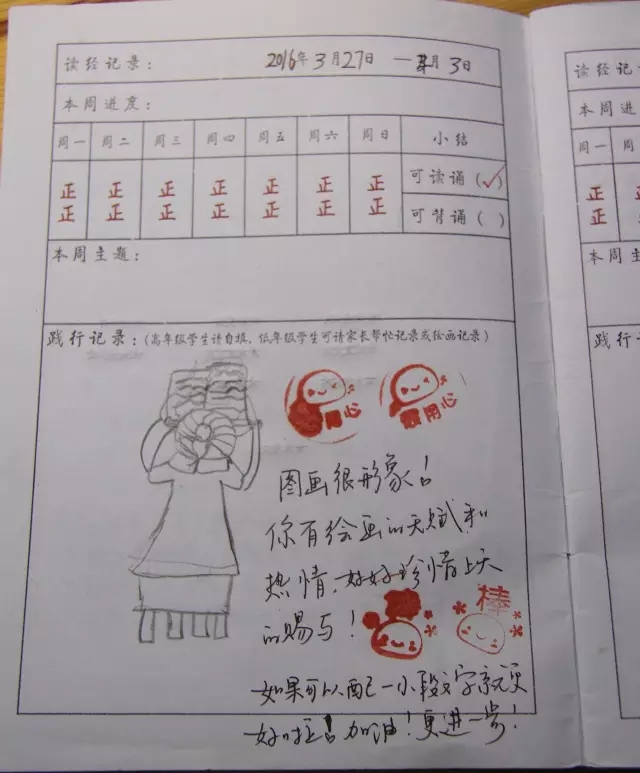 读经记录: 2016年3月27日 —4月3日
本周进度:
周一 周二 周三 周四 周五 周六 周日 小结
正 正 正 正 正 正 正 可读诵(✓)
正 正 正 正 正 正 正 可背诵( )
本周主题:
践行记录:(高年级学生请自填,低年级学生可请家长帮忙记录或绘画记录)
用心 很用心
图画很形象!
你有绘画的天赋和
热情、好好珍惜上天
的赐与!
棒
如果可以配一小段文字就更
好啦!加油!更进一步!
读经记
本周进
周一 周
正
正
本周主
践行